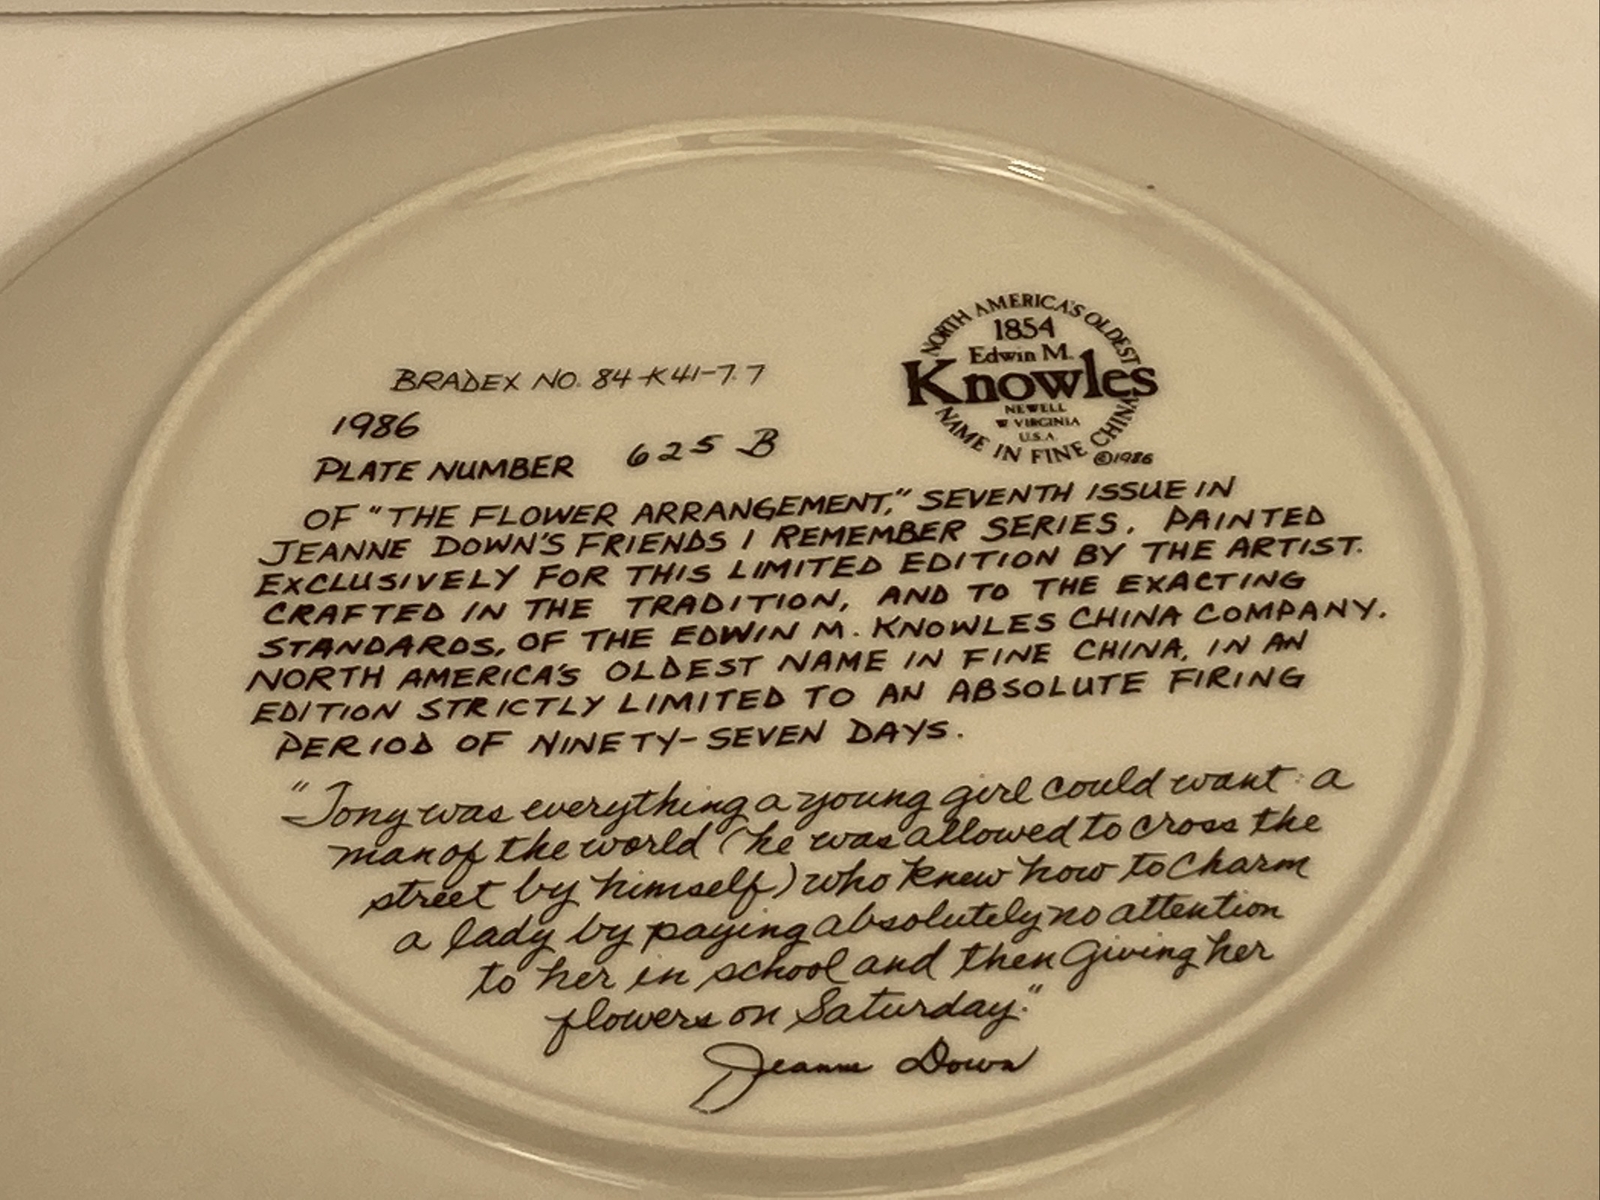 NORTH AMERICA'S OLDEST
1854
Edwin M.
Knowles
NEWELL
W VIRGINIA
U.S.A.
NAME IN FINE CHINA
©1986
BRADEX NO. 84-K41-7.7
1986
PLATE NUMBER 625 B
OF "THE FLOWER ARRANGEMENT," SEVENTH ISSUE IN
JEANNE DOWN'S FRIENDS I REMEMBER SERIES. PAINTED
EXCLUSIVELY FOR THIS LIMITED EDITION BY THE ARTIST.
CRAFTED IN THE TRADITION, AND TO THE EXACTING
STANDARDS, OF THE EDWIN M. KNOWLES CHINA COMPANY.
NORTH AMERICA'S OLDEST NAME IN FINE CHINA, IN AN
EDITION STRICTLY LIMITED TO AN ABSOLUTE FIRING
PERIOD OF NINETY-SEVEN DAYS.
"Tony was everything a young girl could want: a
man of the world (he was allowed to cross the
street by himself) who knew how to charm
a lady by paying absolutely no attention
to her in school and then giving her
flowers on Saturday."
Jeanne Down